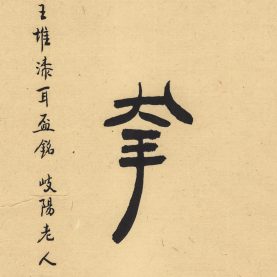 幸
王堆漆耳盃銘 岐陽老人